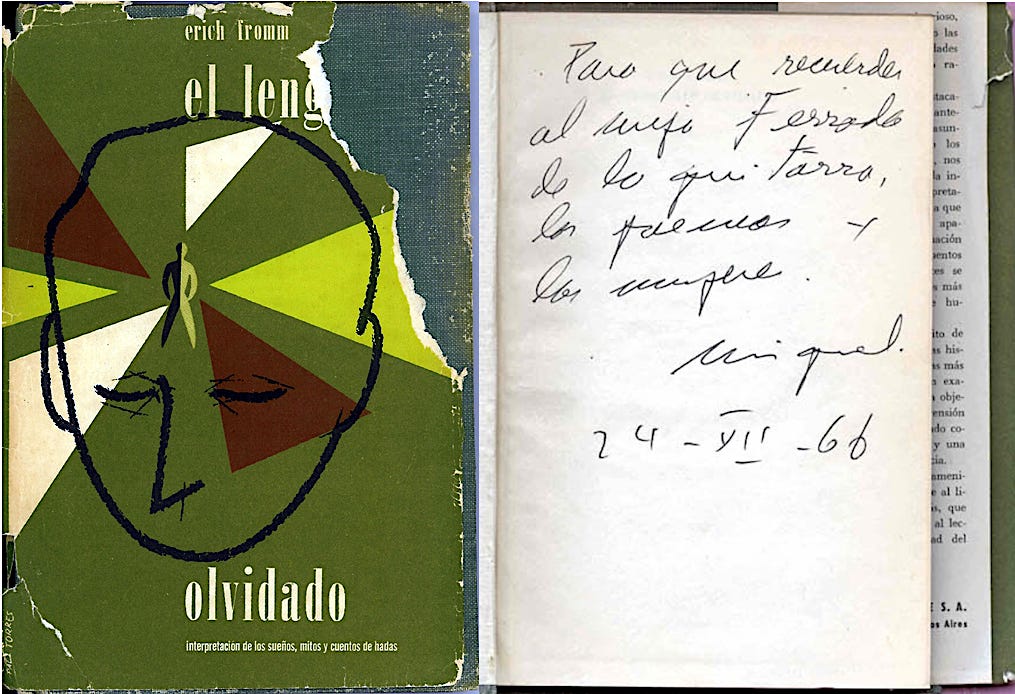 erich fromm
el leng
olvidado
interpretación de los sueños, mitos y cuentos de hadas
TORRES
Para que recuerdes
al viejo Ferrada
de la guitarra,
los poemas y
las mujeres.
Miguel.
24-XII-66
ioso,
las
dades
ra-
staca-
ante-
asun-
los
, nos
la in-
preta-
a que
apa-
nación
entos
es se
más
hu-
ito de
s his-
s más
exa-
obje-
ensión
do co-
y una
cia.
ameni-
e al li-
s, que
al lec-
ad del
E S. A.
os Aires